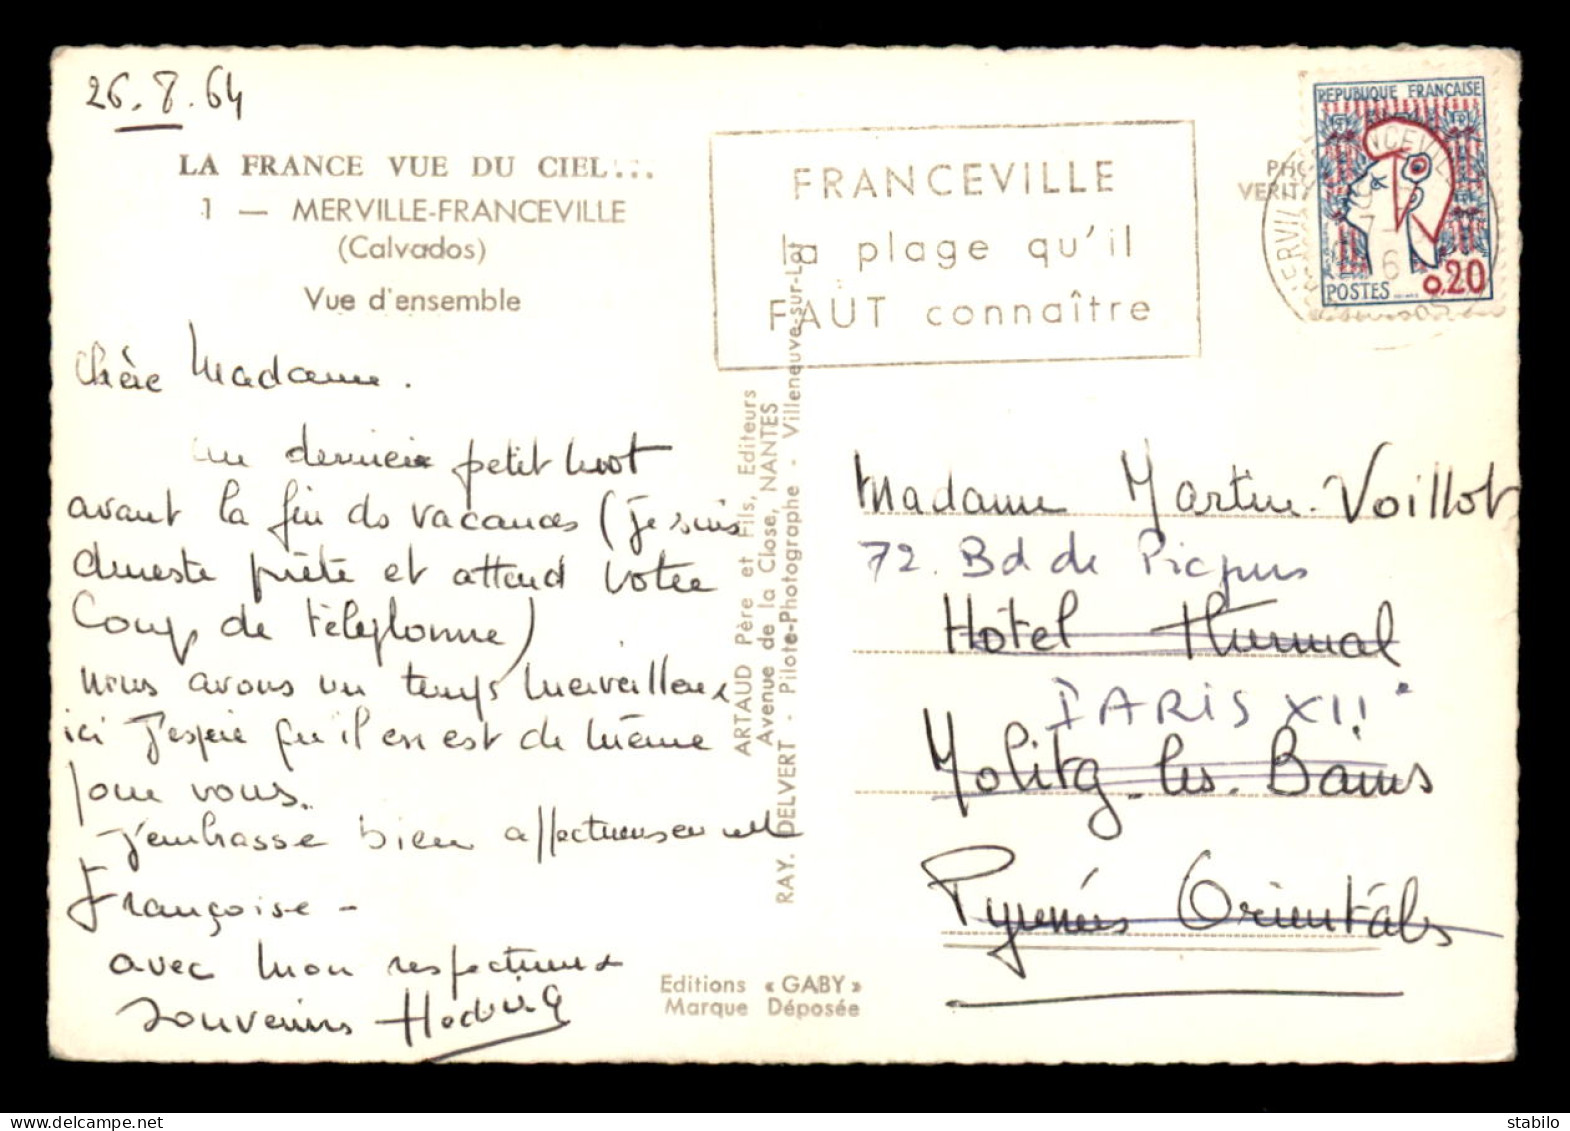 26.8.64
LA FRANCE VUE DU CIEL...
1 — MERVILLE-FRANCEVILLE
(Calvados)
Vue d'ensemble
Chère Madame.
un dernier petit mot
avant la fin des vacances (je suis
du reste prête et attend votre
Coup de téléphone)
nous avons un temps merveilleux
ici j'espère qu'il en est de même
pour vous.
j'embrasse bien affectueusement
Françoise -
avec mon respectueux
souvenirs Hedwig
ARTAUD Père et Fils, Editeurs
Avenue de la Close, NANTES
RAY. DELVERT - Pilote-Photographe - Villeneuve-sur-Lot
Editions « GABY »
Marque Déposée
FRANCEVILLE
la plage qu'il
FAUT connaître
REPUBLIQUE FRANÇAISE
POSTES 0,20
Madame Martin-Voillot
72. Bd de Picpus
Hôtel Thermal
PARIS XII°
Molitg-les-Bains
Pyrénées Orientales
stabilo